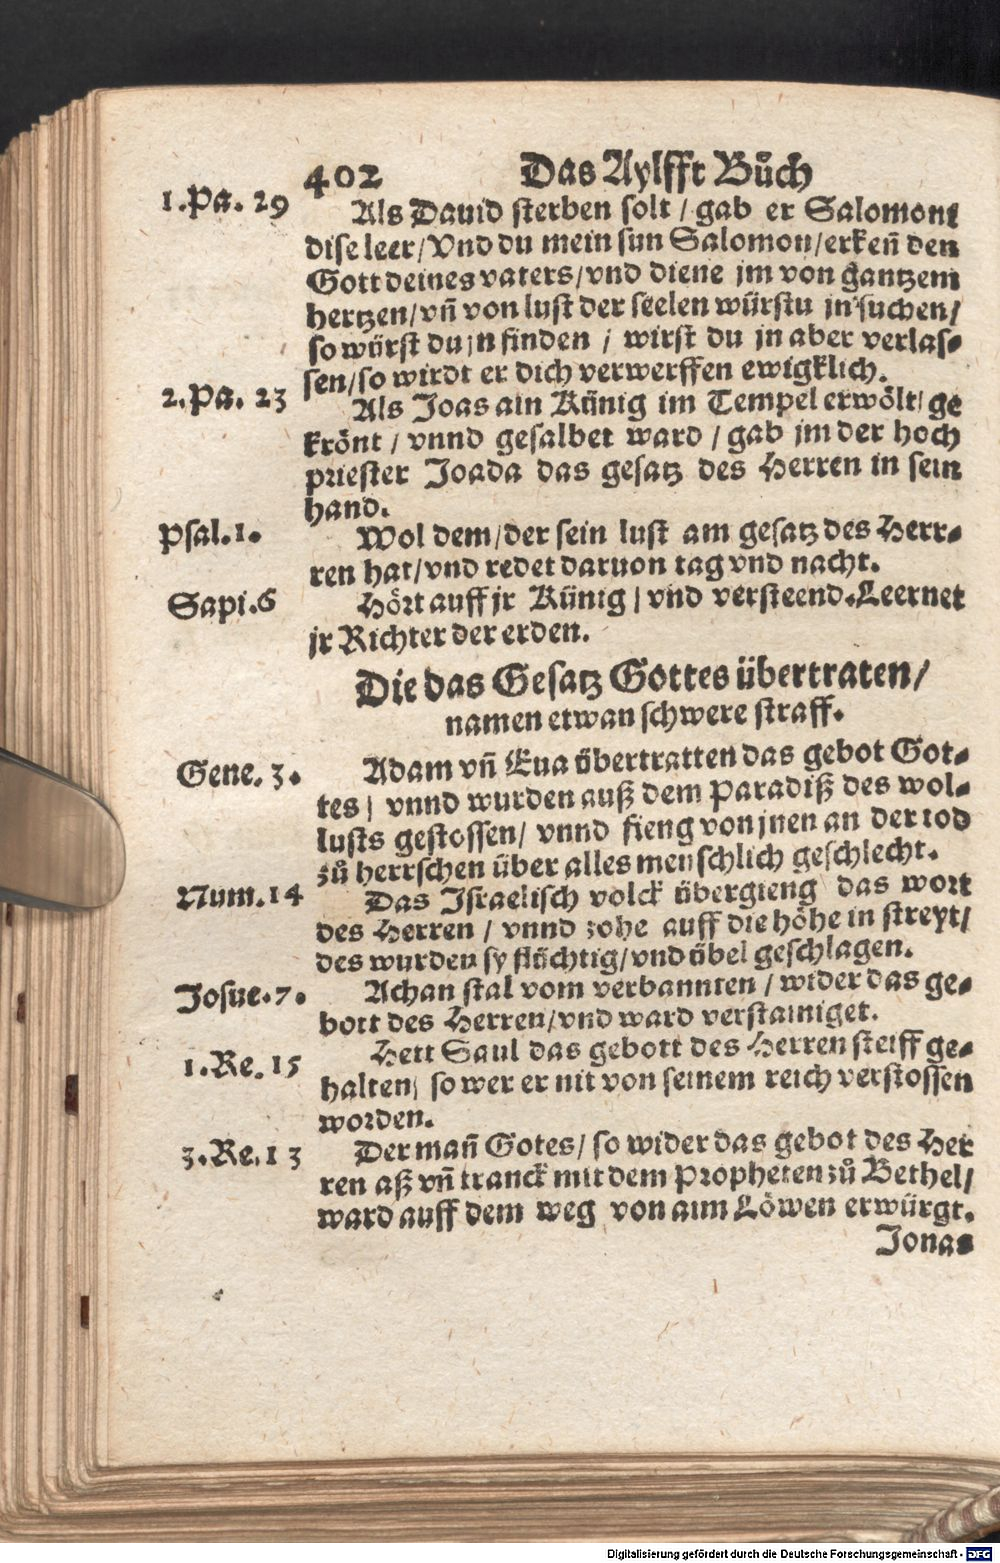 402 Das Aylfft Bůch
1.Pa. 29 Als Dauid sterben solt / gab er Salomoni
dise leer/Vnd du mein sun Salomon/erken̄ den
Gott deines vaters/vnd diene jm von gantzem
hertzen/vn̄ von lust der seelen würstu jn suchen/
so würst du jn finden / wirst du jn aber verlas-
sen/so wirdt er dich verwerffen ewigklich.
2.Pa. 23 Als Joas ain Künig im Tempel erwölt/ ge
krönt / vnnd gesalbet ward / gab jm der hoch
priester Joada das gesatz des Herren in sein
hand.
Psal.1. Wol dem/der sein lust am gesatz des Herr-
ren hat/vnd redet daruon tag vnd nacht.
Sapi.6 Hört auff jr Künig / vnd versteend.Leernet
jr Richter der erden.
Die das Gesatz Gottes übertraten/
namen etwan schwere straff.
Gene. 3. Adam vn̄ Eua übertratten das gebot Got-
tes / vnnd wurden auß dem Paradiß des wol-
lusts gestossen/ vnnd fieng von jnen an der tod
zů herrschen über alles menschlich geschlecht.
Num.14 Das Israelisch volck übergieng das wort
des Herren / vnnd zohe auff die höhe in streyt/
des wurden sy flüchtig/vnd übel geschlagen.
Josue.7. Achan stal vom verbannten / wider das ge-
bott des Herren/vnd ward verstainiget.
1.Re. 15 Hett Saul das gebott des Herren steiff ge-
halten/ so wer er nit von seinem reich verstossen
worden.
3.Re.13 Der man̄ Gotes/ so wider das gebot des Her
ren aß vn̄ tranck mit dem Propheten zů Bethel/
ward auff dem weg von aim Löwen erwürgt.
Jonas
Digitalisierung gefördert durch die Deutsche Forschungsgemeinschaft - DFG